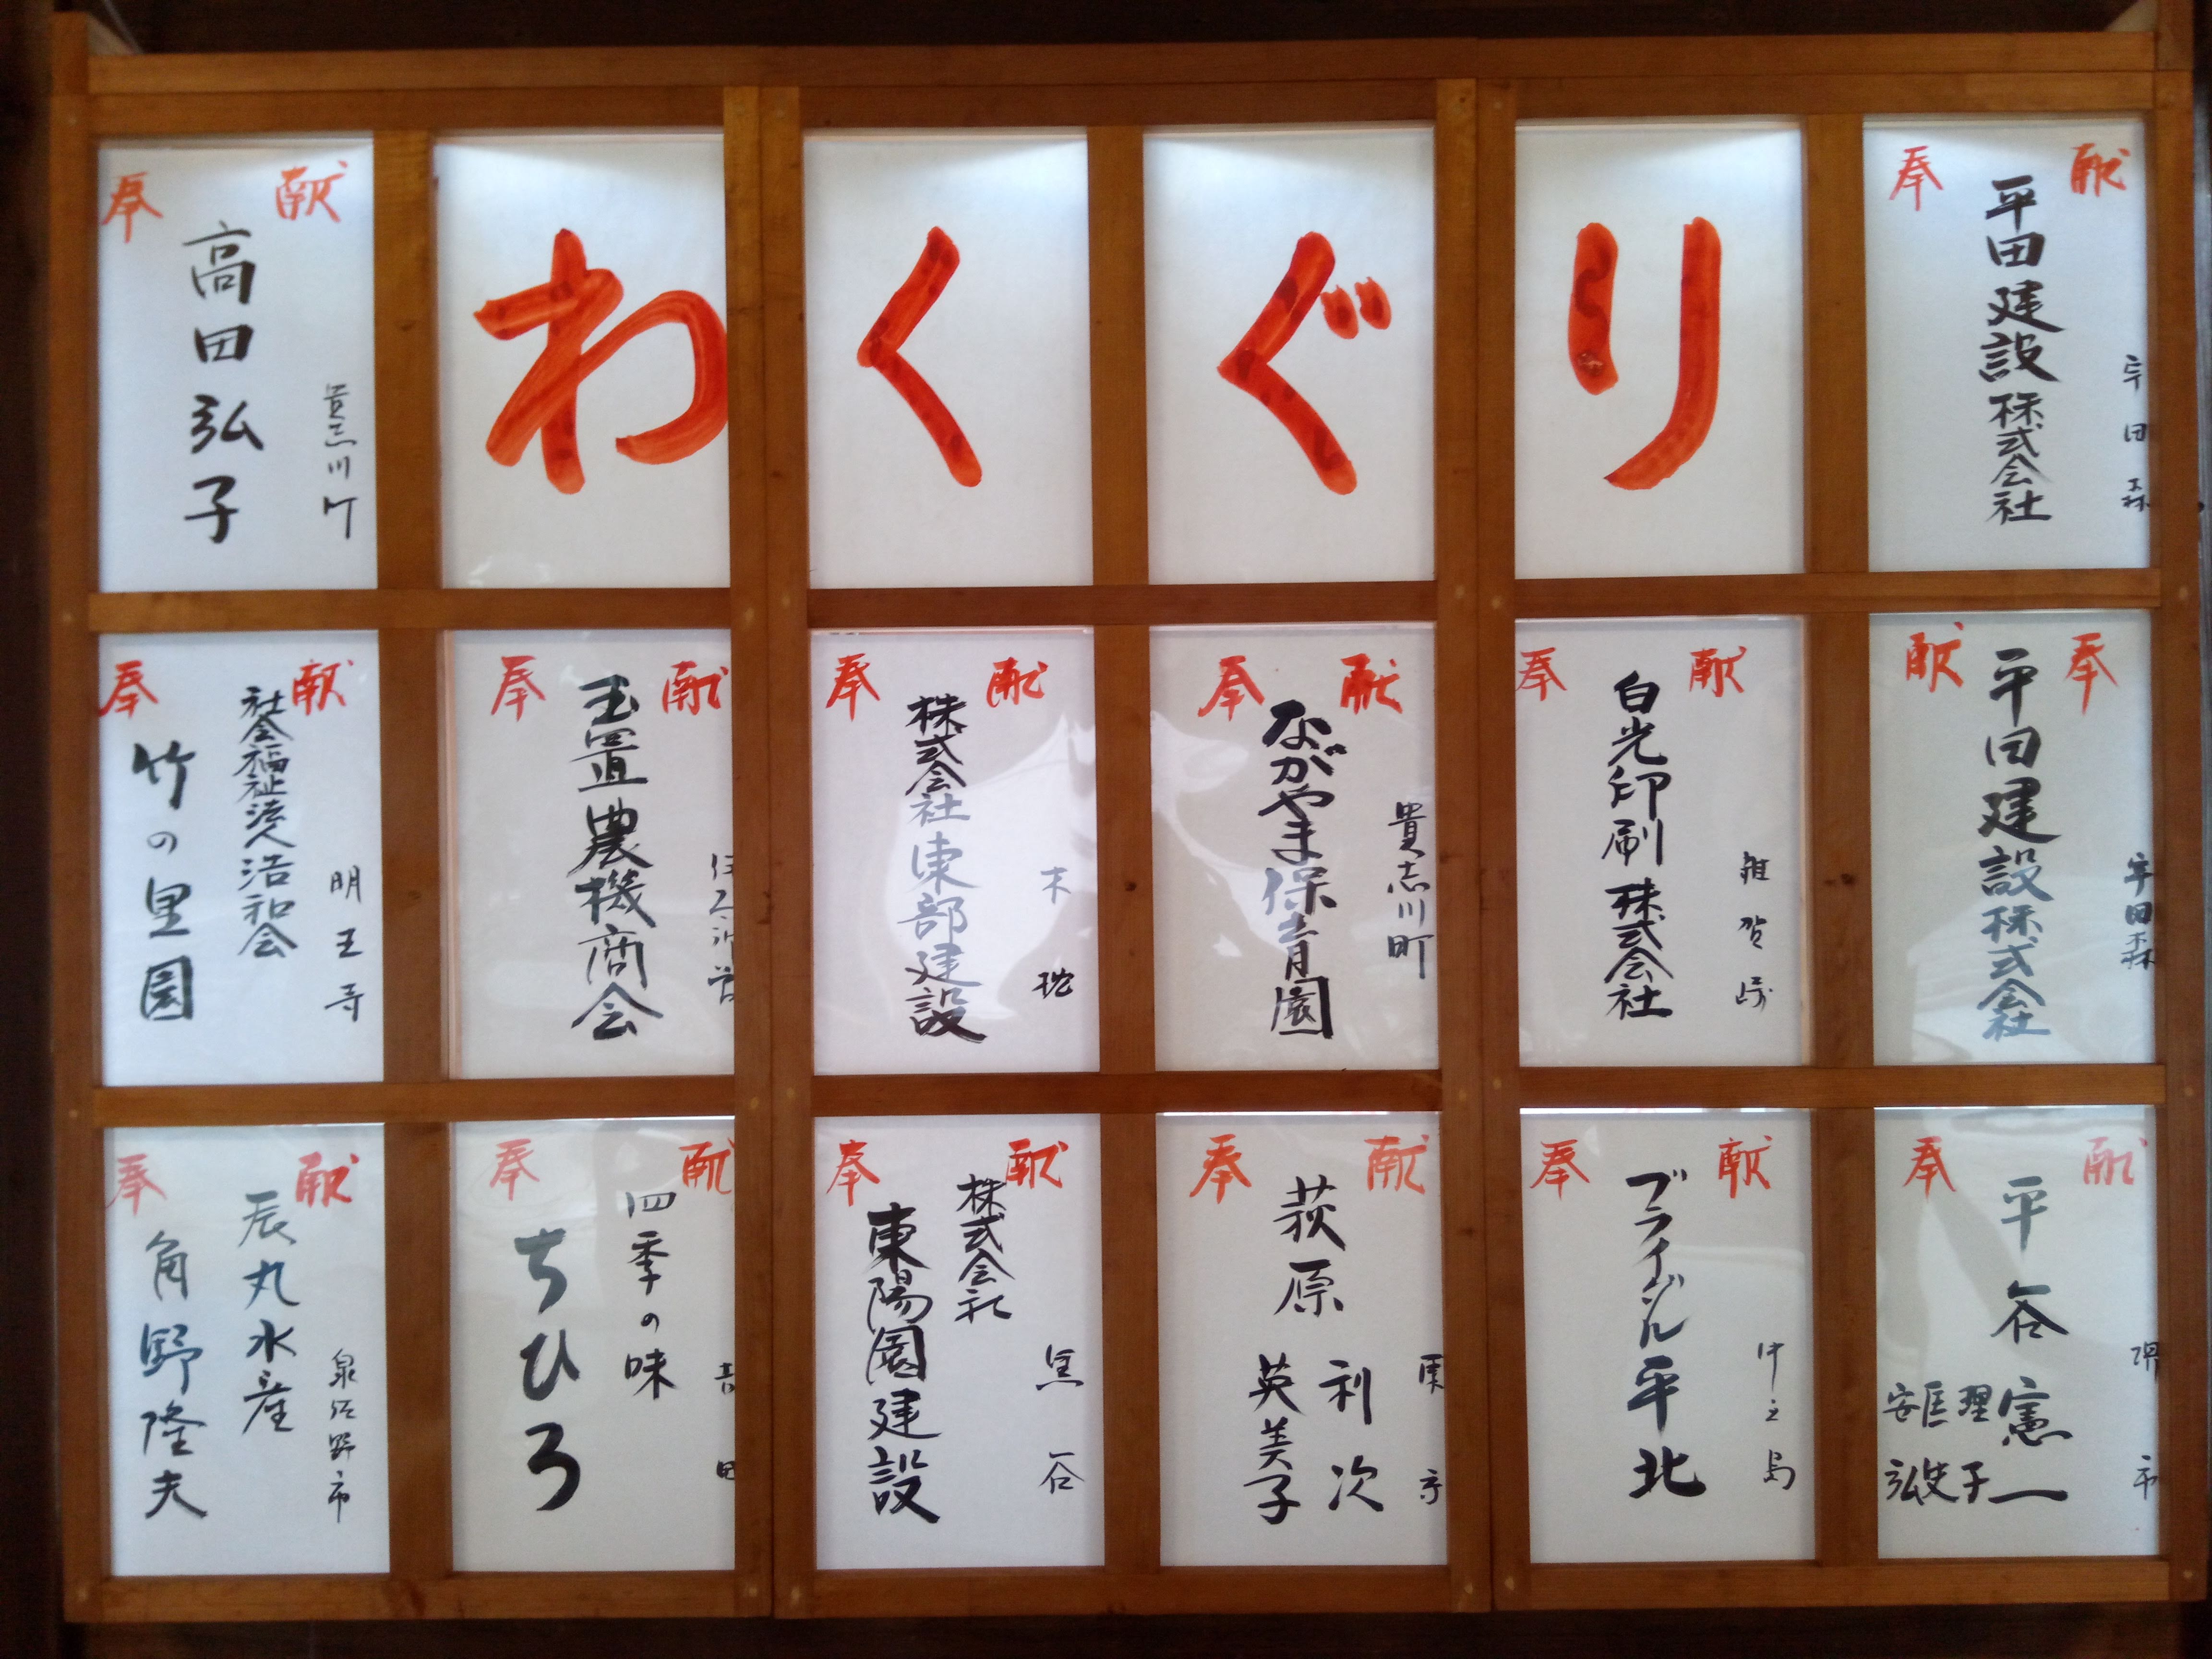 奉献
高田弘子
貴志川町
わくぐり
奉献
平田建設株式会社
宇田森
奉献
社会福祉法人浩和会
竹の里園
明王寺
奉献
玉置農機商会
奉献
株式会社東部建設
木枕
奉献
ながやま保育園
貴志川町
奉献
白光印刷株式会社
雑賀崎
献奉
平田建設株式会社
宇田森
奉献
辰丸水産
角野隆夫
泉佐野市
奉献
四季の味
ちひろ
吉田
奉献
株式会社
東陽園建設
黒谷
奉献
荻原利次
英美子
奉献
ブライダル平北
中之島
奉献
平谷憲一
理子
匡史
安弘
堺市